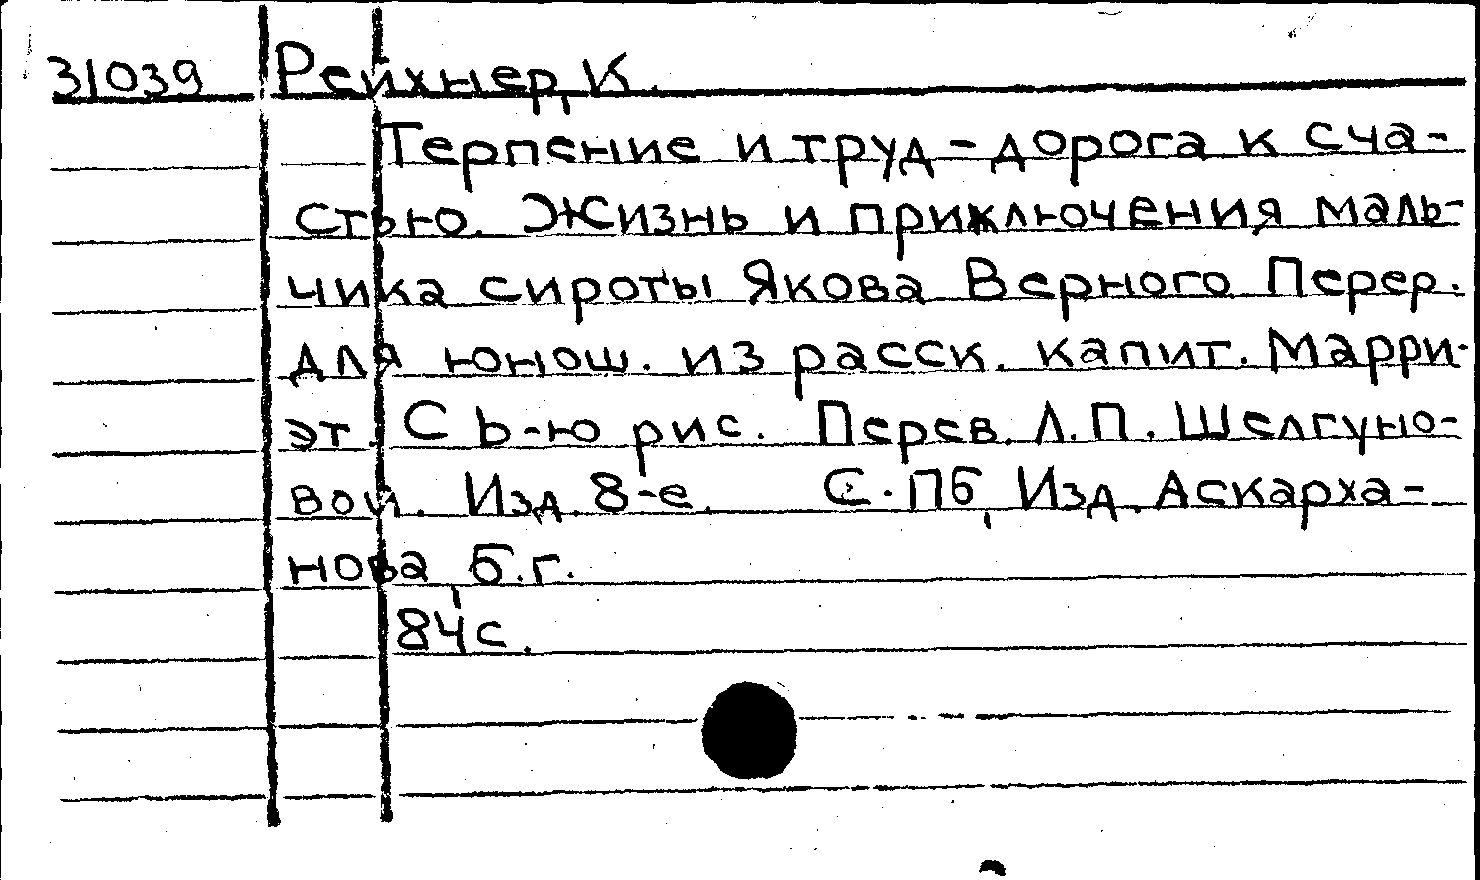 31039 Рейхнер, К.
Терпение и труд - дорога к сча-
стью. Жизнь и приключения маль-
чика сироты Якова Верного Перер.
для юнош. из расск. капит. Марри-
эт. С 6-ю рис. Перев. Л.П. Шелгуно-
вой. Изд. 8-е. С.Пб, Изд. Аскарха-
нова, б.г.
84с.